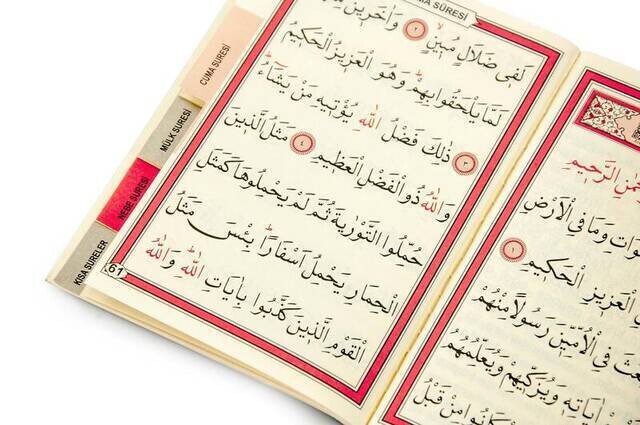 مٰنِ الرَّحِيمِ
وَاتِ وَمَا فِي الْاَرْضِ
الْعَزِيزِ الْحَكِيمِ ١
عَثَ فِي الْاُمِّيّٖنَ رَسُولًا مِنْهُمْ
اٰيَاتِهٖ وَيُزَكّٖيهِمْ وَيُعَلِّمُهُمُ
كَانُوا مِنْ قَبْلُ
MA SÛRESİ
لَفٖى ضَلَالٍ مُبٖينٍ ٢ وَاٰخَرٖينَ
لَمَّا يَلْحَقُوا بِهِمْ وَهُوَ الْعَزٖيزُ الْحَكٖيمُ
٣ ذٰلِكَ فَضْلُ اللّٰهِ يُؤْتٖيهِ مَنْ يَشَاءُ
وَاللّٰهُ ذُو الْفَضْلِ الْعَظٖيمِ ٤ مَثَلُ الَّذٖينَ
حُمِّلُوا التَّوْرٰيةَ ثُمَّ لَمْ يَحْمِلُوهَا كَمَثَلِ
الْحِمَارِ يَحْمِلُ اَسْفَارًا بِئْسَ مَثَلُ
الْقَوْمِ الَّذٖينَ كَذَّبُوا بِاٰيَاتِ اللّٰهِ وَاللّٰهُ
61
CUMA SURESİ
MÜLK SURESİ
NEBE SURESİ
KISA SURELER